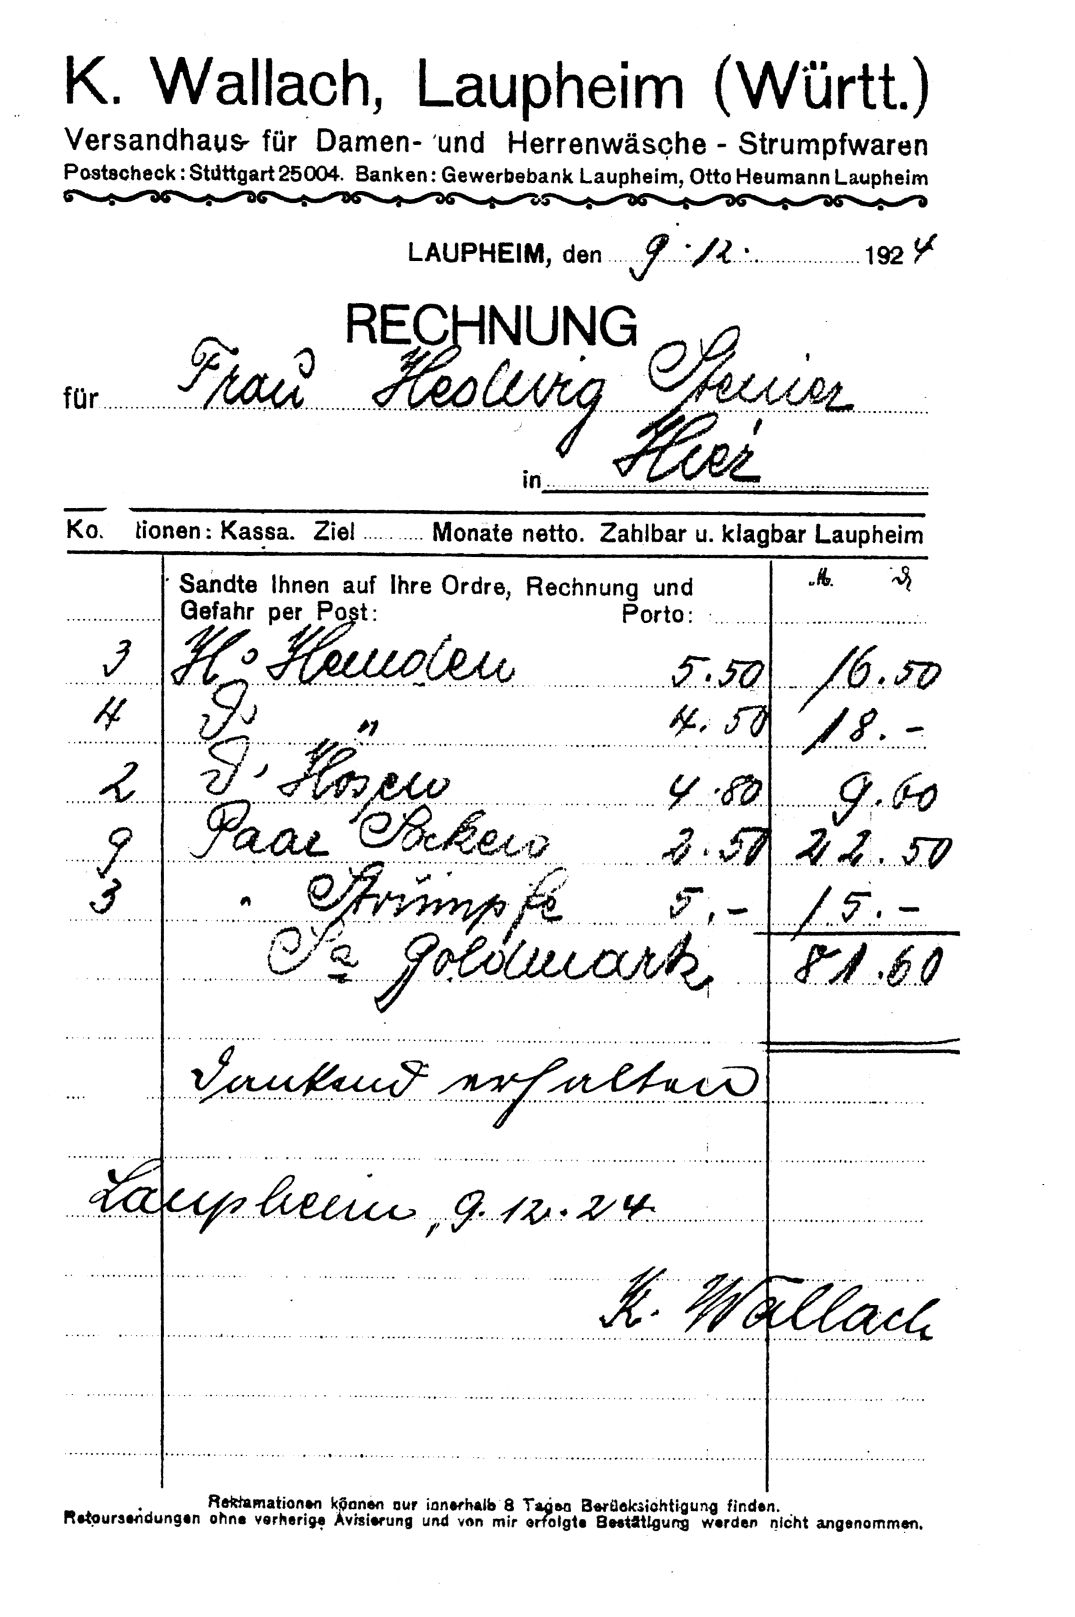 K. Wallach, Laupheim (Württ.)
Versandhaus für Damen- und Herrenwäsche - Strumpfwaren
Postscheck: Stuttgart 25004. Banken: Gewerbebank Laupheim, Otto Heumann Laupheim
LAUPHEIM, den 9.12. 1924
RECHNUNG
für Frau Hedwig Steiner
in Hier
Ko. tionen: Kassa. Ziel ........ Monate netto. Zahlbar u. klagbar Laupheim
Sandte Ihnen auf Ihre Ordre, Rechnung und M. ₰
Gefahr per Post: Porto:
3 H. Hemden 5.50 16.50
4 D. " 4.50 18.-
2 D. Hosen 4.80 9.60
9 Paar Socken 2.50 22.50
3 " Strümpfe 5.- 15.-
Sa Goldmark 81.60
Dankend erhalten
Laupheim, 9.12.24
K. Wallach
Reklamationen können nur innerhalb 8 Tagen Berücksichtigung finden.
Retoursendungen ohne vorherige Avisierung und von mir erfolgte Bestätigung werden nicht angenommen.